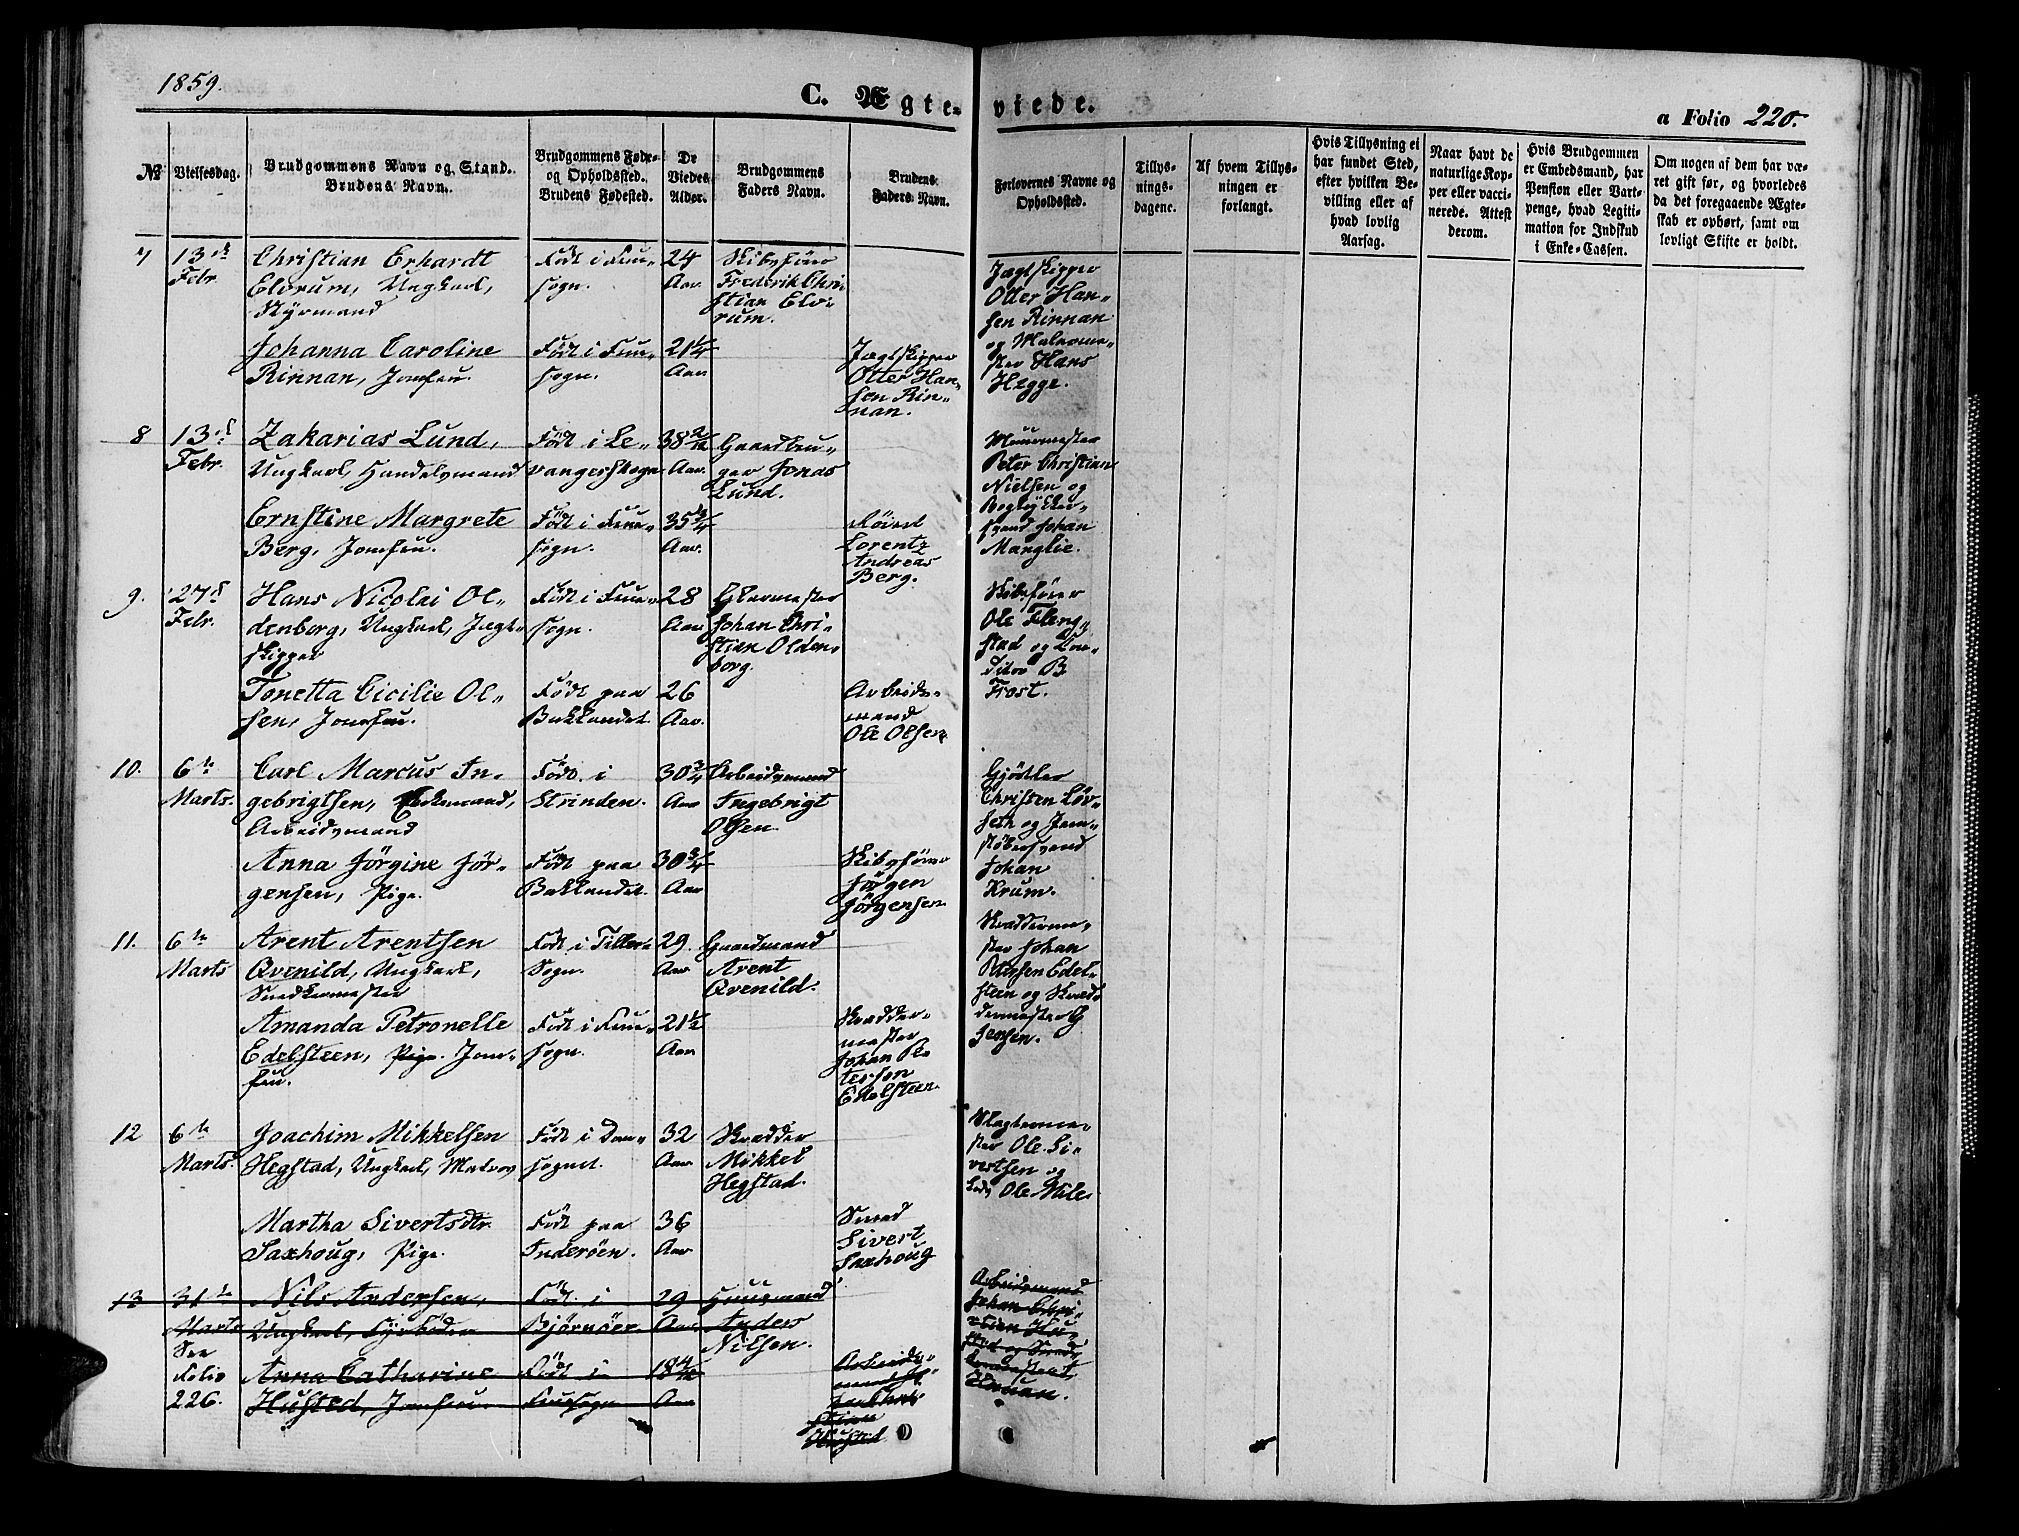 1859.
C. Ægteviede.
a Folio 220.
№
Vielsesdag.
Brudgommens Navn og Stand.
Brudens Navn.
Brudgommens Føde-
og Opholdssted.
Brudens Fødested.
De
Viedes
Alder.
Brudgommens
Faders Navn.
Brudens
Faders Navn.
Forlovernes Navne og
Opholdssted.
Tillys-
nings-
dagene.
Af hvem Tillys-
ningen er
forlangt.
Hvis Tillysning ei
har fundet Sted,
efter hvilken Be-
villing eller af
hvad lovlig
Aarsag.
Naar havt de
naturlige Kop-
per eller vacci-
nerede. Attest
derom.
Hvis Brudgommen
er Embedsmand, har
Pension eller Vart-
penge, hvad Legiti-
mation for Indskud
i Enke-Cassen.
Om nogen af dem har væ-
ret gift før, og hvorledes
da det foregaaende Ægte-
skab er ophørt, samt om
lovligt Skifte er holdt.
7
13de
Febr.
Christian Erhardt
Elvrum, Ungkarl,
Styrmand
Født i Frue-
sogn.
24
Aar.
Skibsfører
Frederik Chri-
stian Elv-
rum.
Jægtskipper
Otter Han-
sen Rinnan
og Malerme-
ster Hans
Hegge.
Johanna Caroline
Rinnan, Jomfru.
Født i Frue-
sogn.
21 1/4
Aar.
Jægtskipper
Otter Han-
sen Rin-
nan.
8
13d
Febr.
Zakarias Lund,
Ungkarl, Handelsmand
Født i Le-
vangerskogn
38 2/12
Aar.
Gaardbru-
ger Jonas
Lund.
Muurmester
Peter Christian
Nielsen og
Bogtrykker-
svend Johan
Manglie.
Ernstine Margrete
Berg, Jomfru.
Født i Frue-
sogn.
35 3/4
Aar.
Lorentz
Andreas
Berg.
9.
27d
Febr.
Hans Nicolai Ol-
denborg, Ungkarl, Jægt-
skipper
Født i Frue-
sogn.
28
Aar
Glarmester
Johan Chri-
stian Olden-
borg.
Skibsfører
Ole Fleng-
stad og Con-
ditor B
Frost.
Tonetta Cicilie Ol-
sen, Jomfru.
Født paa
Baklandet.
26
Aar.
Arbeids-
mand
Ole Olsen.
10.
6te
Marts.
Carl Marcus In-
gebrigtsen, Enkemand,
Arbeidsmand
Født i
Strinden.
30 3/4
Aar
Arbeidsmand
Ingebrigt
Olsen.
Gjørtler
Christen Løv-
seth og Jern-
støbersvend
Johan
Krum.
Anna Jørgine Jør-
gensen, Pige.
Født paa
Baklandet.
30 3/4
Aar
Skibsfører
Jørgen
Jørgensen.
11.
6te
Marts
Arent Arentsen
Qvenild, Ungkarl,
Snedkermester
Født i Tiller
Sogn.
29.
Aar
Gaardmand
Arent
Qvenild.
Skrædderme-
ster Johan
Petersen Edel-
steen og Skræd-
dermester G
Jensen.
Amanda Petronelle
Edelsteen, Pige. Jom-
fru.
Født i Frue-
sogn.
21 1/2
Aar
Skrædder-
mester
Johan Pe-
tersen
Edelsteen.
12
6te
Marts.
Joachim Mikkelsen
Hegstad, Ungkarl, Matros
Født i Dom-
sognet.
32
Aar.
Skrædder
Mikkel
Hegstad.
Slagterme-
ster Ole Si-
vertsen og
Ole
Martha Sivertsdtr.
Saxhoug, Pige.
Født paa
Inderøen.
36
Aar
Smed
Sivert
Saxhoug
13
31te
Marts
See
Folio
226.
Nils Andersen,
Ungkarl, Fyrbøder
Født i
Bjørnøer.
29
Aar.
Huusmand
Anders
Nilsen.
Arbeidsmand
Johan Chri-
stian Hu-
sted og
Anna Catharine
Husted, Jomfru.
Født i
Fruesogn
18 4/12
Aar
Arbeids-
mand Jo-
han Chri-
stian
Husted.